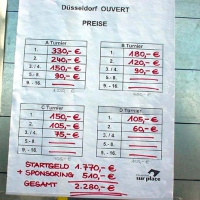 Düsseldorf OUVERT
PREISE
A Turnier
1. 330,- €
2. 240,- €
3. / 4. 150,- €
5.- 8. 90,- €
9. - 16.
B Turnier
1. 180,- €
2. 120,- €
3. / 4. 90,- €
5.- 8.
9. - 16.
C Turnier
1. 150,- €
2. 105,- €
3. / 4. 75,- €
5.- 8.
9. - 16.
D Turnier
1. 105,- €
2. 60,- €
3. / 4.
5.- 8.
9. - 16.
STARTGELD 1.770,- €
+ SPONSORING 510,- €
GESAMT 2.280,- €
sur place